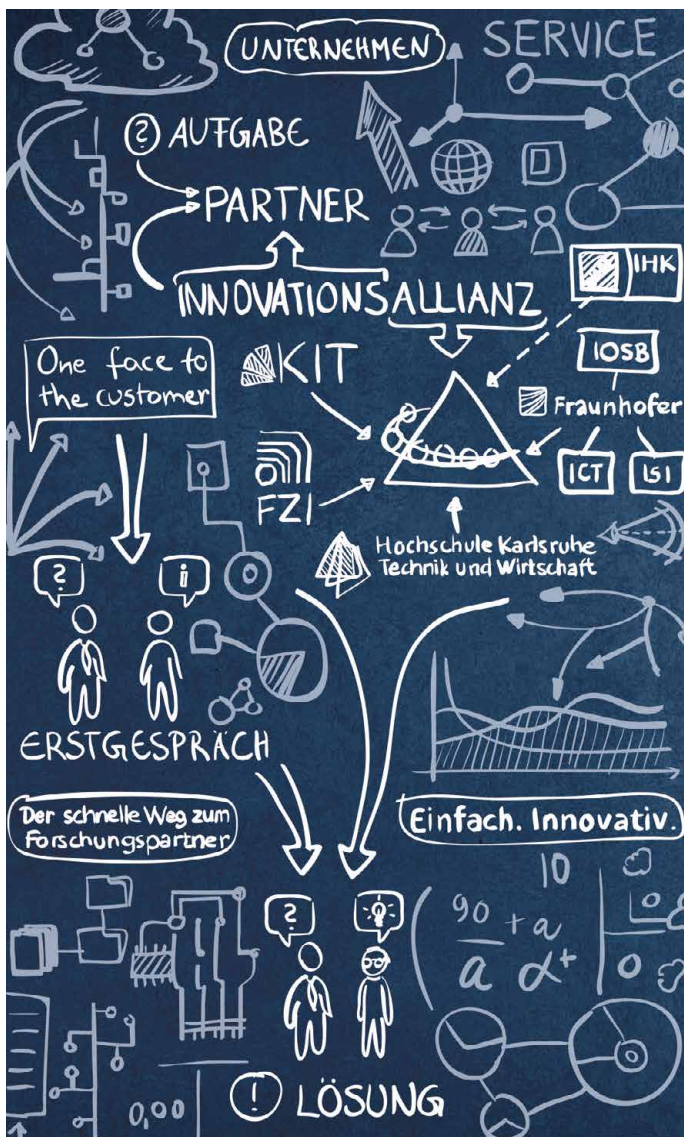 UNTERNEHMEN
SERVICE
? AUFGABE
PARTNER
INNOVATIONSALLIANZ
IHK
One face to
the customer
KIT
IOSB
Fraunhofer
ICT
ISI
FZI
Hochschule Karlsruhe
Technik und Wirtschaft
?
i
ERSTGESPRÄCH
Der schnelle Weg zum
Forschungspartner
Einfach. Innovativ.
10
90
a
+ a
α+
?
0,00
! LÖSUNG